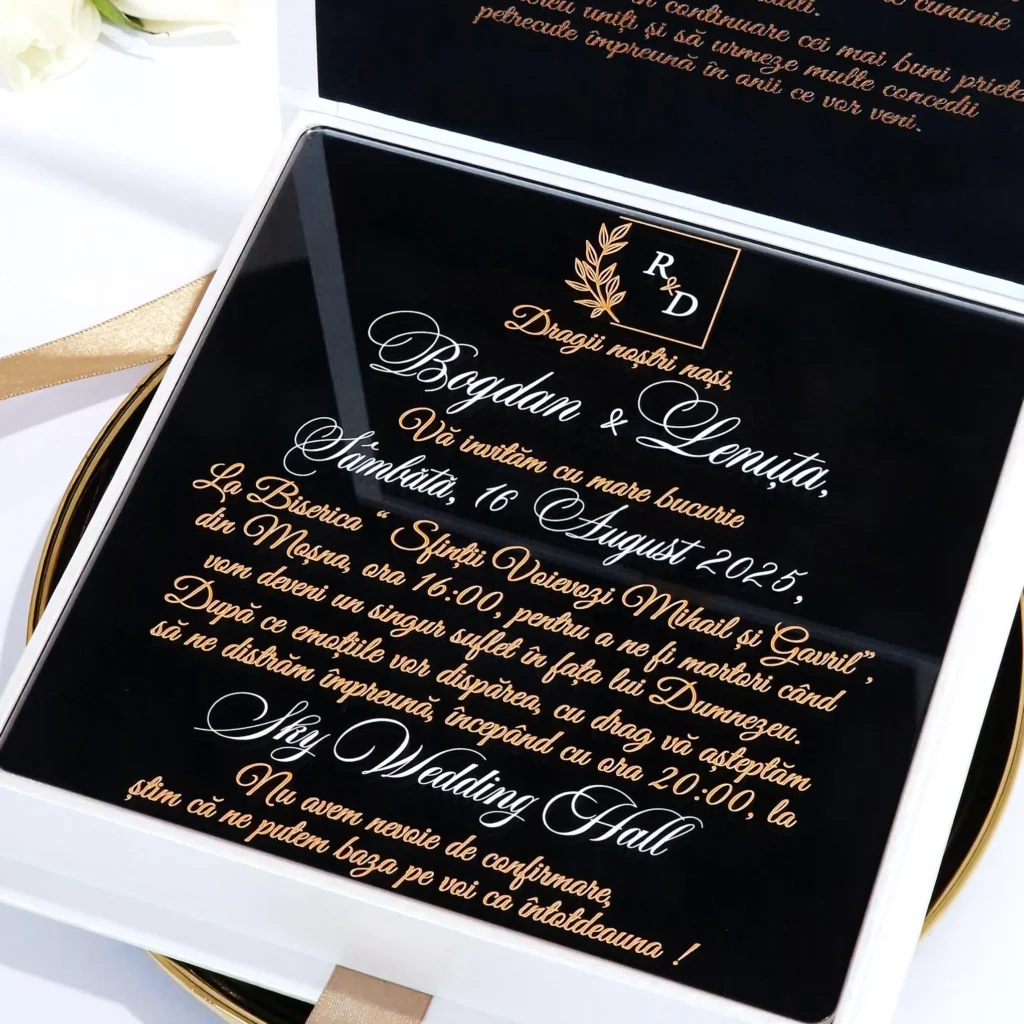 cununie
continuare cei mai buni
uniți și să urmeze multe concedii
petrecute împreună în anii ce vor veni.
R
&
D
Dragii noștri nași,
Bogdan & Lenuța,
Vă invităm cu mare bucurie
Sâmbătă, 16 August 2025,
La Biserica “ Sfinții Voievozi Mihail și Gavril”,
din Moșna, ora 16:00, pentru a ne fi martori când
vom deveni un singur suflet în fața lui Dumnezeu.
După ce emoțiile vor dispărea, cu drag vă așteptăm
să ne distrăm împreună, începând cu ora 20:00, la
Sky Wedding Hall
Nu avem nevoie de confirmare,
știm că ne putem baza pe voi ca întotdeauna !